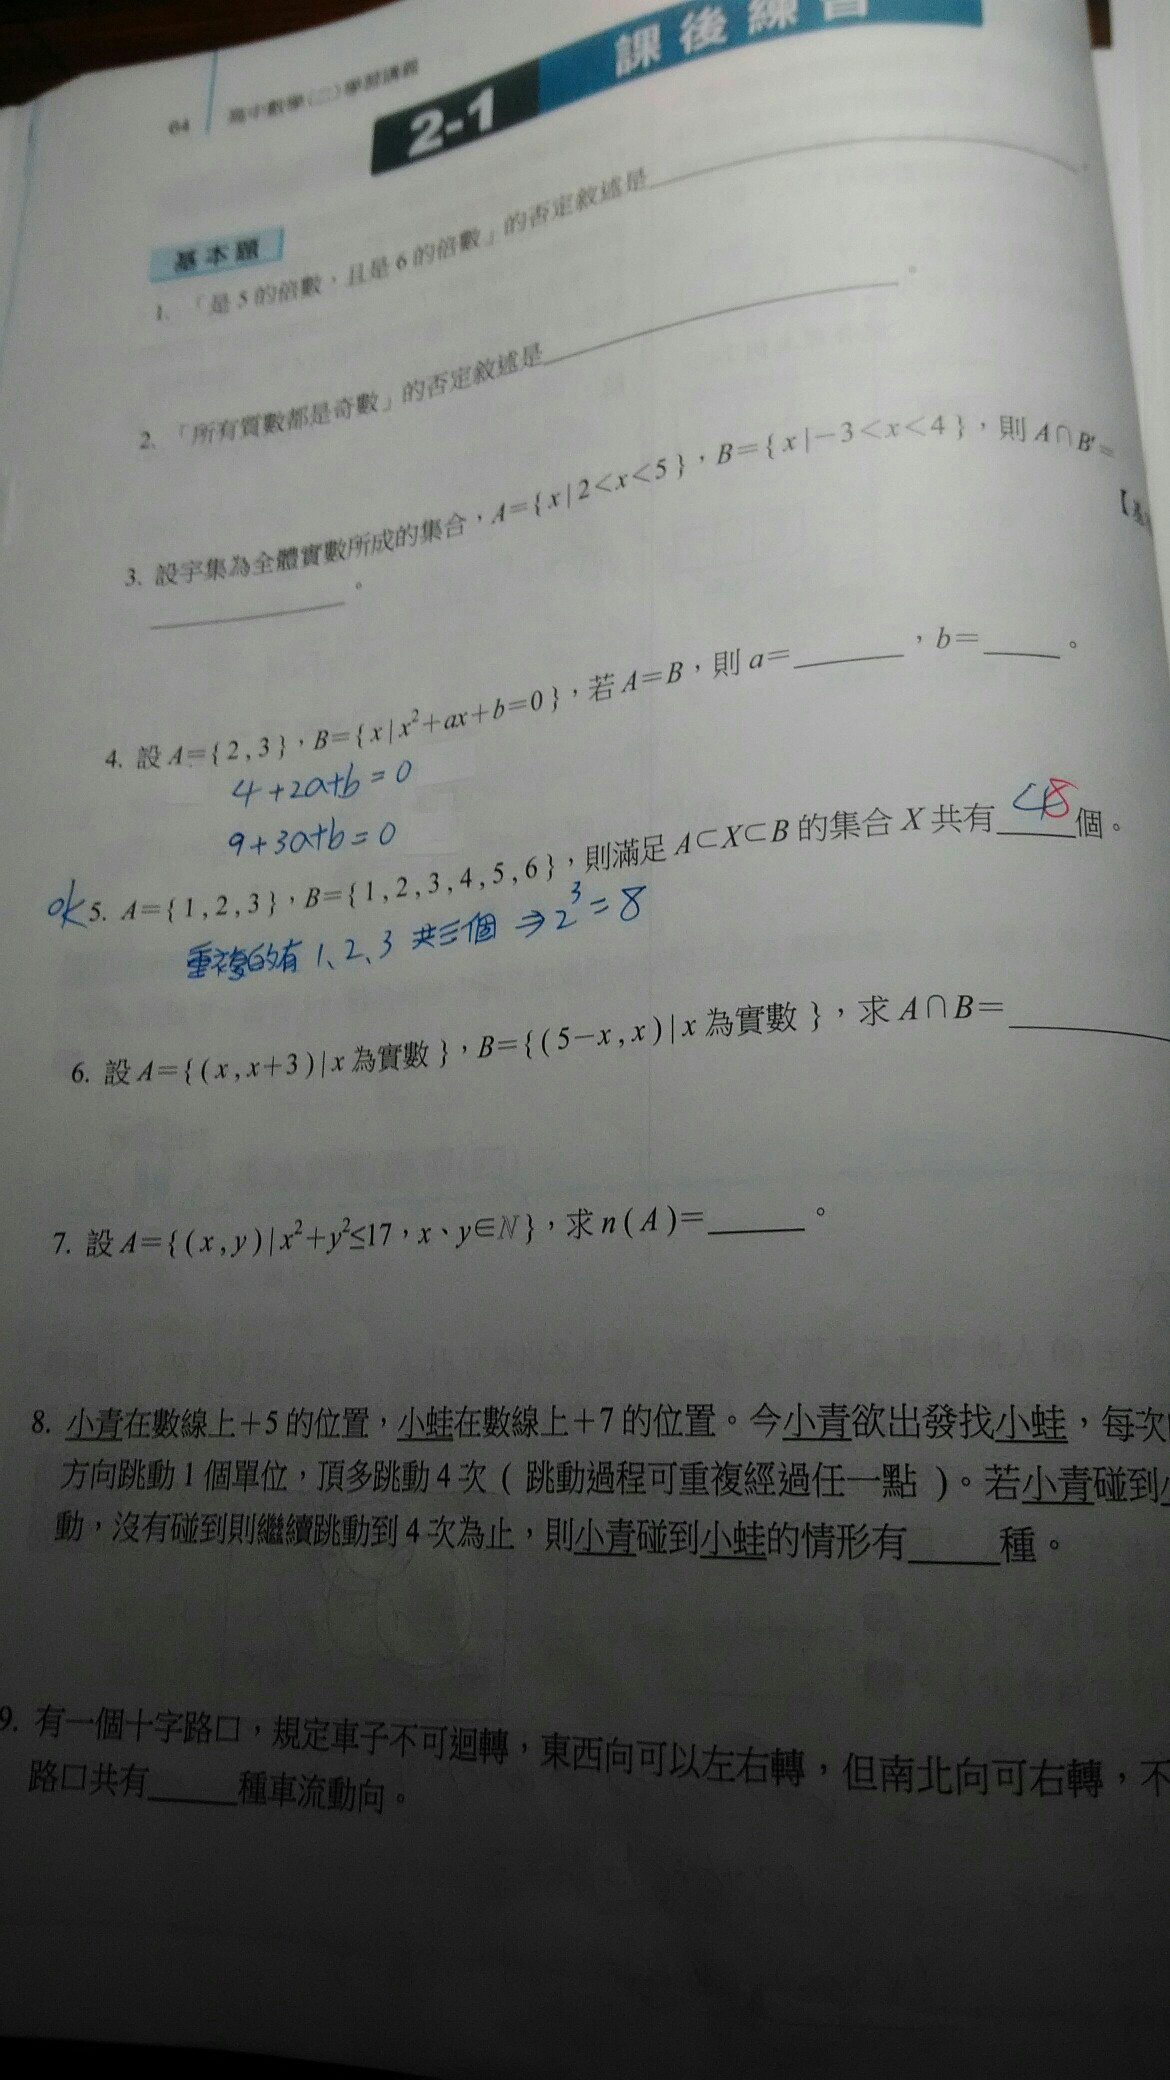 64 高中數學(二)學習講義
2-1 課後練習
基本題
1. 「是5的倍數,且是6的倍數」的否定敘述是
。
2. 「所有質數都是奇數」的否定敘述是
3. 設宇集為全體實數所成的集合,A={x|2<x<5},B={x|-3<x<4},則A∩B'=
。
【基
4. 設A={2,3},B={x|x²+ax+b=0},若A=B,則a=______,b=____。
4+2a+b=0
9+3a+b=0
ok 5. A={1,2,3},B={1,2,3,4,5,6},則滿足A⊂X⊂B的集合X共有 8 個。
重複的有 1、2、3 共三個 ⇒ 2³=8
6. 設A={(x,x+3)|x為實數},B={(5-x,x)|x為實數},求A∩B=
7. 設A={(x,y)|x²+y²≤17,x、y∈ℕ},求n(A)=______。
8. 小青在數線上+5的位置,小蛙在數線上+7的位置。今小青欲出發找小蛙,每次
方向跳動1個單位,頂多跳動4次(跳動過程可重複經過任一點)。若小青碰到
動,沒有碰到則繼續跳動到4次為止,則小青碰到小蛙的情形有_____種。
9. 有一個十字路口,規定車子不可迴轉,東西向可以左右轉,但南北向可右轉,不
路口共有_____種車流動向。